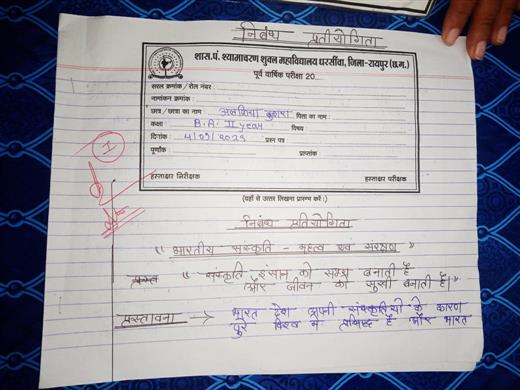 निबंध प्रतीयोगिता
शास.पं. श्यामाचरण शुक्ल महाविद्यालय धरसींवा, जिला-रायपुर (छ.ग.)
पूर्व वार्षिक परीक्षा 20......
सरल क्रमांक / रोल नंबर :
नामांकन क्रमांक :
छात्र / छात्रा का नाम : पिता का नाम :
कक्षा : B.A. II year विषय
दिनांक : प्रश्न पत्र
पूर्णांक : प्राप्तांक :
हस्ताक्षर निरीक्षक हस्ताक्षर परीक्षक
(यहाँ से उत्तर लिखना प्रारम्भ करें।)
I
निबंध प्रतीयोगिता
"भारतीय संस्कृति - महत्व एवं संरक्षण
"संस्कृति इंसान को सभ्य बनाती है
और जीवन को सुखी बनाती है।"
प्रस्तावना → भारत देश अपनी संस्कृतियो के कारण
पुरे विश्व मे प्रसिद्ध है और भारत